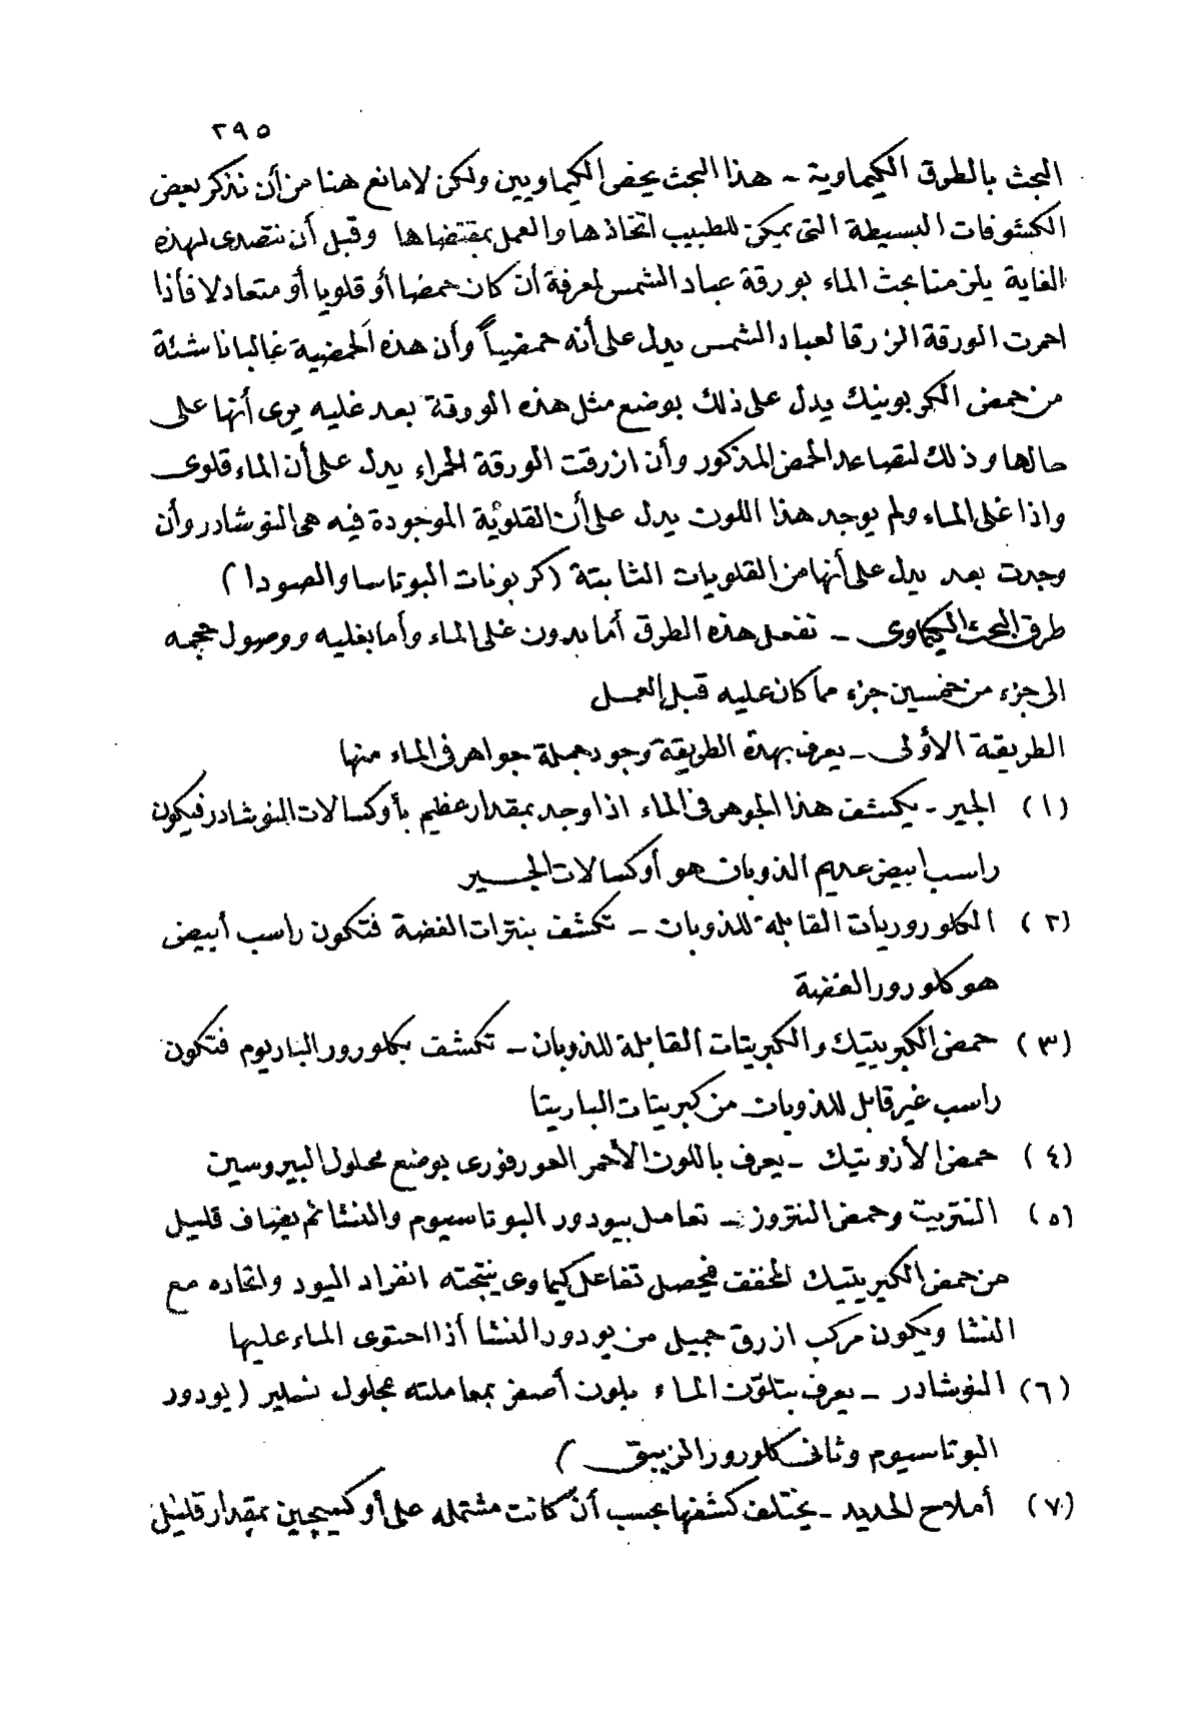 ٢٩٥
البحث بالطرق الكيماوية - هذا البحث يخص الكيماويين ولكن لا مانع هنا من أن نذكر بعض
الكشوفات البسيطة التى يمكن للطبيب اتخاذها والعمل بمقتضاها وقبل أن نتصدى لهذه
الغاية يلزمنا بحث الماء بورقة عباد الشمس لمعرفة أن كان حمضا أو قلويا أو متعادلا فأذا
احمرت الورقة الزرقا لعباد الشمس يدل على أنه حمضياً وأن هذه الحمضية غالبا ناشئة
من حمض الكربونيك يدل على ذلك بوضع مثل هذه الورقة بعد غليه يرى أنها على
حالها وذلك لتصاعد الحمض المذكور وأن ازرقت الورقة الحمراء يدل على أن الماء قلوى
واذا غلى الماء ولم يوجد هذا اللون يدل على أن القلوية الموجودة فيه هى النوشادر وأن
وجدت بعد يدل على أنها من القلويات الثابتة (كربونات البوتاسا والصودا)
طرق البحث الكيماوى - تفعل هذه الطرق أما بدون غلى الماء وأما بغليه ووصول حجمه
الى جزء من خمسين جزء مما كان عليه قبل العمل
الطريقة الأولى - يعرف بهذه الطريقة وجود جملة جواهر فى الماء منها
(١) الجير - يكشف هذا الجوهر فى الماء اذا وجد بمقدار عظيم بأوكسالات النوشادر فيكون
راسب ابيض عديم الذوبان هو أوكسالات الجسير
(٢) الكلوروريات القابلة للذوبان - تكشف بنترات الفضة فتكون راسب أبيض
هو كلورور الفضة
(٣) حمض الكبريتيك والكبريتات القابلة للذوبان - تكشف بكلورور الباريوم فتكون
راسب غير قابل للذوبان من كبريتات الباريتا
(٤) حمض الأزوتيك - يعرف باللون الأحمر الفورى بوضع محلول البيروسين
(٥) النتريت وحمض النتروز - تعامل بيودور البوتاسيوم والنشا ثم يضاف قليل
من حمض الكبريتيك المخفف فيحصل تفاعل كيماوى ينتجته انفراد اليود واتحاده مع
النشا ويكون مركب ازرق جميل من يودور النشا أذا احتوى الماء عليها
(٦) النوشادر - يعرف بتلون الماء بلون أصفر بمعاملته بمحلول نسلير (يودور
البوتاسيوم وثانى كلورور الزيبق)
(٧) أملاح الحديد - يختلف كشفها بحسب أن كانت مشتمله على أوكسيجين بمقدار قليل